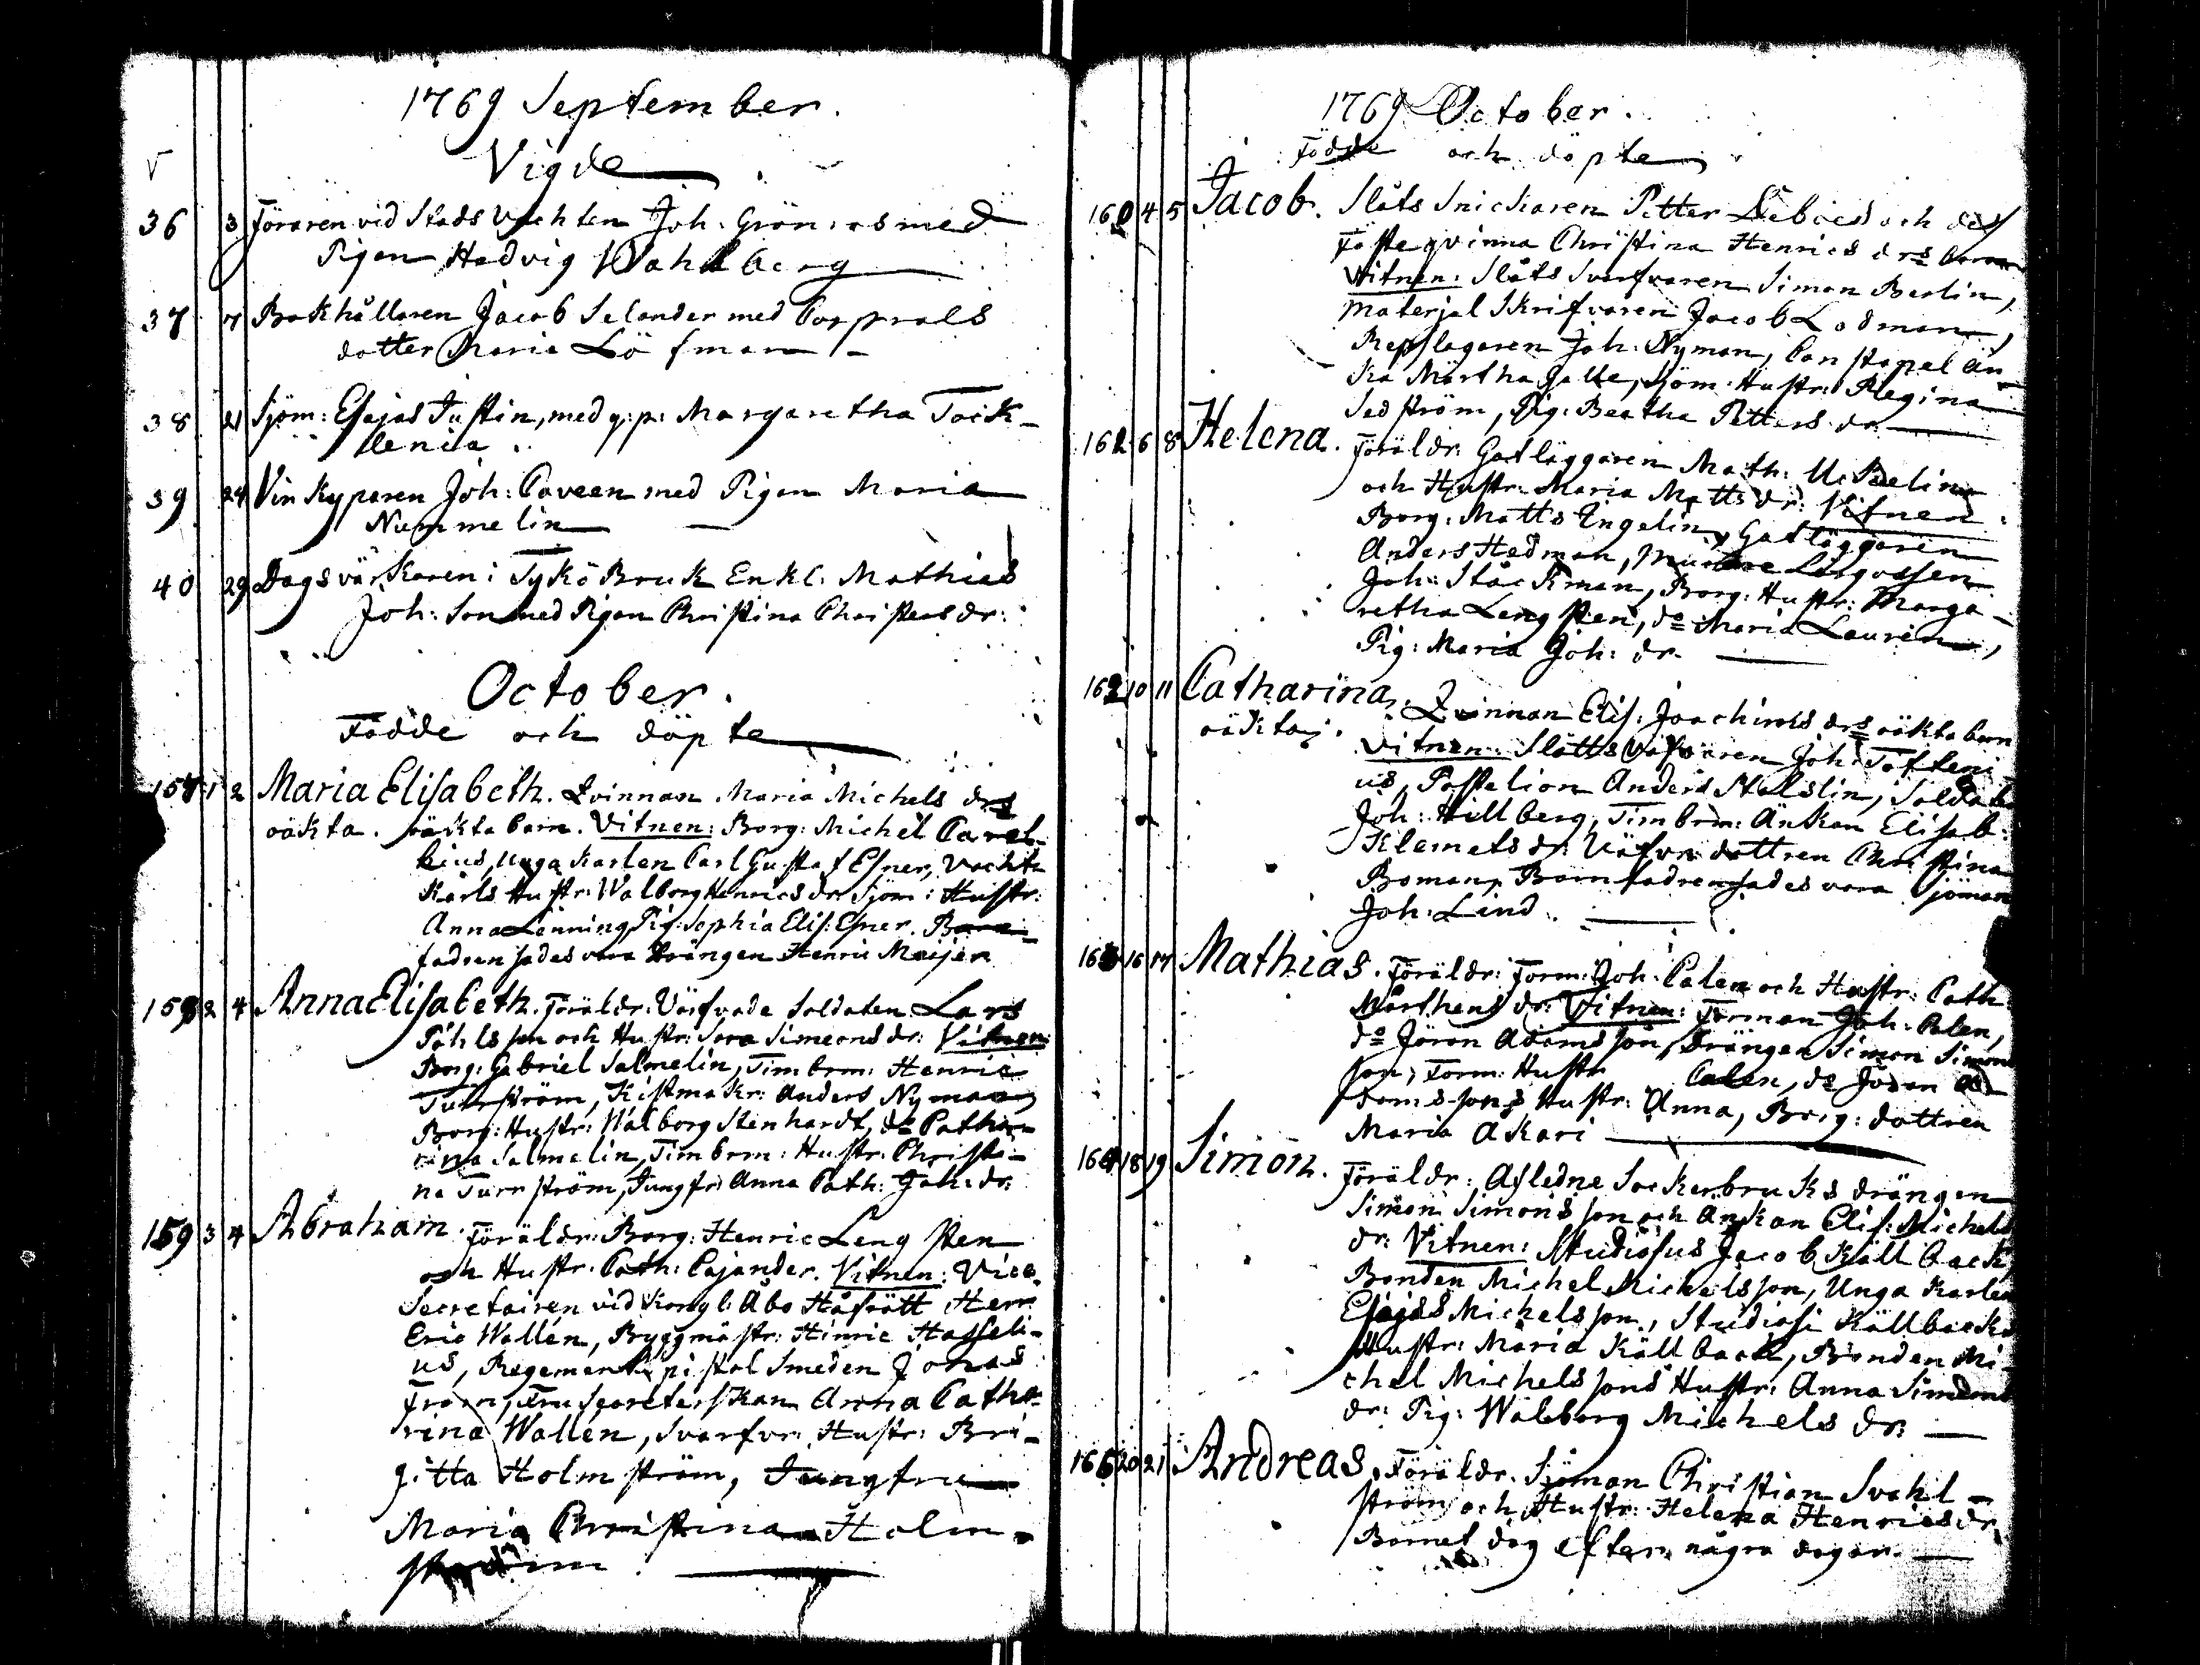 1769 September.
Vigde
36 3 Föraren vid Stads Vachten Joh. Grönroos med
Pigan Hedvig Wahlberg
37 7 Bokhållaren Jacob Selander med Corprals
dotter Maria Löfman
38 21 Sjöm: Esajas Justin, med q: p: Margaretha Tock-
lenia
39 24 Vin Kyparen Joh: Paveen med Pigan Maria
Nummelin
40 29 Dagsvärkaren i Tykö Bruk Enkl: Mathias
Joh: Son med Pigan Christina Christersdr:
October.
Födde och döpte
157 1 2 Maria Elisabeth. Qvinnan Maria Michels drs
oäkta. oäkta barn. Vitnen: Borg: Michel Carel-
lius, Unga Karlen Carl Gustaf Esner, Vacht-
Karls Hustr: Walborg Henrics dr Sjöm: Hustr:
Anna Lönning Pig: Sophia Elis: Esner. Barn-
fadren sades vara Drängen Henric Meijer
158 2 4 Anna Elisabeth. Föräldr: Värfvade Soldaten Lars
Påhlsson och Hustr: Sara Simeonsdr: Vitnen:
Borg: Gabriel Salmelin, Timbrm: Henric
Turrström, Kistmakr: Anders Nyman,
Borg: Hustr: Walborg Stenhardt, do Catha-
rina Salmelin, Timbrm: Hustr: Christi-
na Turrström, Jungfr: Anna Cath: Joh: dr:
159 3 4 Abraham. Föräldr: Borg: Henric Lengsten
och Hustr: Cath: Cajander. Vitnen: Vice
Secretairen vid Kongl: Åbo Håfrätt Herr
Eric Wallén, Byggmästr: Hinric Hasseli-
us, Regements pistol Smeden Jonas
From, Fru Secreterskan Anna Catha-
rina Wallén, Svarfvr: Hustr: Bri-
gitta Holmström, Jungfru
Maria Christina Holm-
ström
1769 October.
Födde och döpte
160 4 5 Jacob. Slåts Snickaren Petter Leboed och des
Fästeqvinna Christina Henrics drs barn
Vitnen: Slåts Svarfvaren Simon Berlin,
Materjal Skrifvaren Jacob Lodman,
Repslagaren Joh: Nyman, Constapel än-
ka Märtha Galle, Sjöm: Hustr: Regina
Sedström, Pig: Beatha Petters dr
161 6 8 Helena. Föräldr: Gatläggaren Math: Uddelin
och Hustr: Maria Matts dr: Vitnen
Borg: Matts Engelin, Gatläggaren
Anders Hedman, Murare Lärgossen
Joh: Stäckman, Borg: Hustr: Marga-
retha Lengsten, do Maria Laurén,
Pig: Maria Joh: dr
162 10 11 Catharina. Qvinnan Elis: Joachims drs oäkta barn
oäkta. Vitnen: Slåtts Joh: Tofteni-
us, Postelion Anders Stelslin, Soldaten
Joh: Hillberg, Timbrm: Änkan Elisab:
Klemets dr: Väfvr: dottren Christina
Boman, Barnfadren sades vara Sjöman
Joh: Lind
163 16 17 Mathias. Föräldr: Form: Joh: Palen och Hustr: Cath:
Mårthens dr: Vitnen: Forman Joh: Palen,
do Jöran Adamsson, Drängen Simon Simons
son, Form: Hustr Calen, do Jöran Ad-
damssons Hustr: Anna, Borg: dottren
Maria Akari
164 18 19 Simon. Föräldr: Afledne Sockerbruks drängen
Simon Simons son och Änkan Elis: Michels
dr: Vitnen: Studiosus Jacob Källback,
Bonden Michel Michelsson, Unga Karlen
Esajas Michelsson, Studiosi Källbacks
Hustr: Maria Källback, Bonden Mi-
chel Michelssons Hustr: Anna Simons
dr: Pig: Walborg Michels dr:
165 20 21 Andreas. Föräldr. Sjöman Christian Svahl-
ström och Hustr: Helena Henricsdr
Barnet dog efter några dagar.